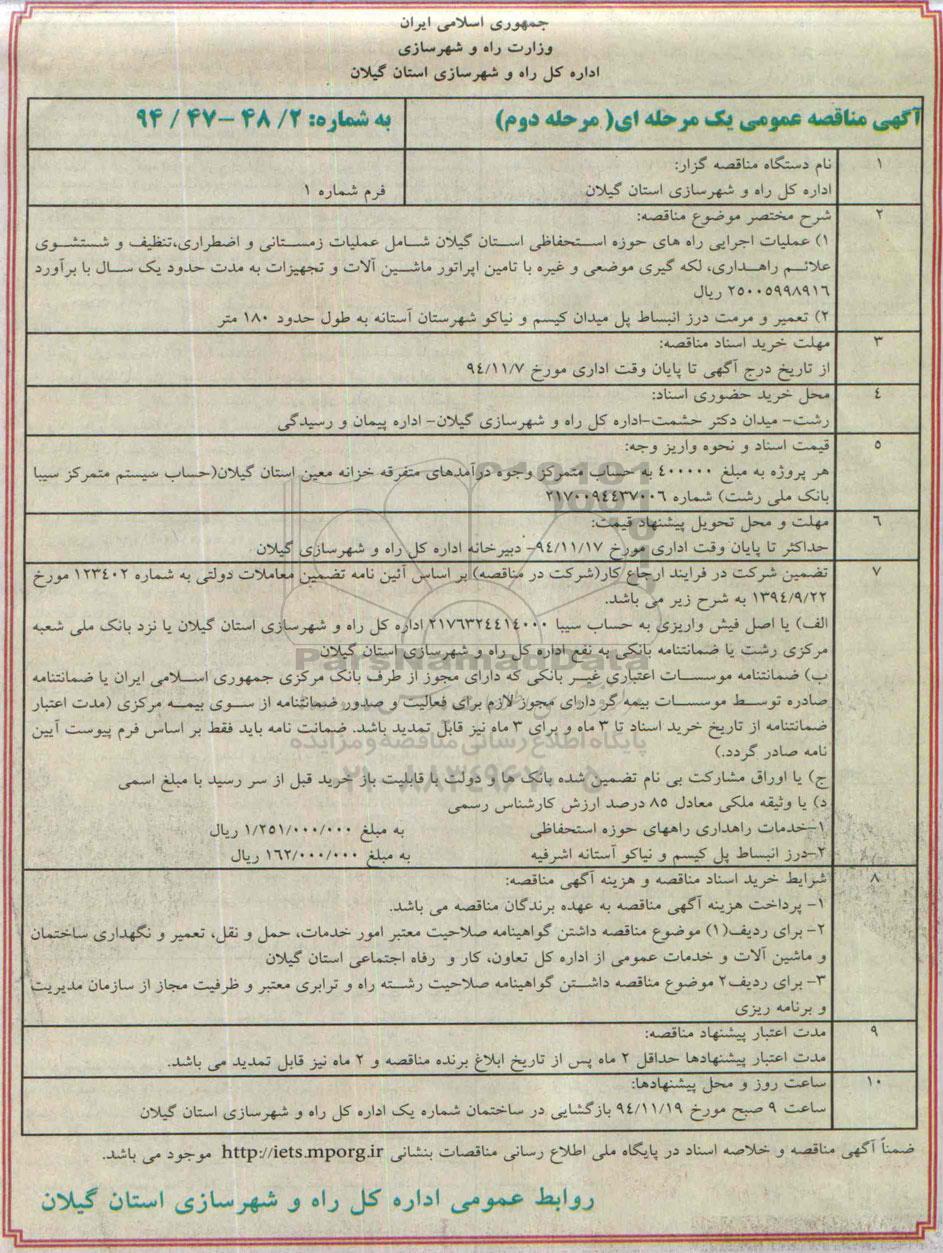 جمهوری اسلامی ایران
وزارت راه و شهرسازی
اداره کل راه و شهرسازی استان گیلان
آگهی مناقصه عمومی یک مرحله ای( مرحله دوم)
به شماره: ۲/ ۴۸ –۴۷ / ۹۴
۱
نام دستگاه مناقصه گزار:
اداره کل راه و شهرسازی استان گیلان
فرم شماره ۱
۲
شرح مختصر موضوع مناقصه:
۱) عملیات اجرایی راه های حوزه استحفاظی استان گیلان شامل عملیات زمستانی و اضطراری،تنظیف و شستشوی
علائم راهداری، لکه گیری موضعی و غیره با تامین اپراتور ماشین آلات و تجهیزات به مدت حدود یک سال با برآورد
۲۵۰۰۵۹۹۸۹۱۶ ریال
۲) تعمیر و مرمت درز انبساط پل میدان کیسم و نیاکو شهرستان آستانه به طول حدود ۱۸۰ متر
۳
مهلت خرید اسناد مناقصه:
از تاریخ درج آگهی تا پایان وقت اداری مورخ ۹۴/۱۱/۷
۴
محل خرید حضوری اسناد:
رشت- میدان دکتر حشمت-اداره کل راه و شهرسازی گیلان- اداره پیمان و رسیدگی
۵
قیمت اسناد و نحوه واریز وجه:
هر پروژه به مبلغ ۴۰۰۰۰۰ به حساب متمرکز وجوه درآمدهای متفرقه خزانه معین استان گیلان(حساب سیستم متمرکز سیبا
بانک ملی رشت) شماره ۲۱۷۰۰۹۴۴۳۷۰۰۶
۶
مهلت و محل تحویل پیشنهاد قیمت:
حداکثر تا پایان وقت اداری مورخ ۹۴/۱۱/۱۷- دبیرخانه اداره کل راه و شهرسازی گیلان
۷
تضمین شرکت در فرایند ارجاع کار(شرکت در مناقصه) بر اساس آئین نامه تضمین معاملات دولتی به شماره ۱۲۳۴۰۲ مورخ
۱۳۹۴/۹/۲۲ به شرح زیر می باشد.
الف) یا اصل فیش واریزی به حساب سیبا ۲۱۷۶۳۲۴۴۱۴۰۰۰ اداره کل راه و شهرسازی استان گیلان یا نزد بانک ملی شعبه
مرکزی رشت یا ضمانتنامه بانکی به نفع اداره کل راه و شهرسازی استان گیلان
ب) ضمانتنامه موسسات اعتباری غیر بانکی که دارای مجوز از طرف بانک مرکزی جمهوری اسلامی ایران یا ضمانتنامه
صادره توسط موسسات بیمه گر دارای مجوز لازم برای فعالیت و صدور ضمانتنامه از سوی بیمه مرکزی (مدت اعتبار
ضمانتنامه از تاریخ خرید اسناد تا ۳ ماه و برای ۳ ماه نیز قابل تمدید باشد. ضمانت نامه باید فقط بر اساس فرم پیوست آیین
نامه صادر گردد.)
ج) یا اوراق مشارکت بی نام تضمین شده بانک ها و دولت با قابلیت باز خرید قبل از سر رسید با مبلغ اسمی
د) یا وثیقه ملکی معادل ۸۵ درصد ارزش کارشناس رسمی
۱-خدمات راهداری راههای حوزه استحفاظی به مبلغ ۱/۲۵۱/۰۰۰/۰۰۰ ریال
۲-درز انبساط پل کیسم و نیاکو آستانه اشرفیه به مبلغ ۱۶۲/۰۰۰/۰۰۰ ریال
۸
شرایط خرید اسناد مناقصه و هزینه آگهی مناقصه:
۱- پرداخت هزینه آگهی مناقصه به عهده برندگان مناقصه می باشد.
۲- برای ردیف(۱) موضوع مناقصه داشتن گواهینامه صلاحیت معتبر امور خدمات، حمل و نقل، تعمیر و نگهداری ساختمان
و ماشین آلات و خدمات عمومی از اداره کل تعاون، کار و رفاه اجتماعی استان گیلان
۳- برای ردیف۲ موضوع مناقصه داشتن گواهینامه صلاحیت رشته راه و ترابری معتبر و ظرفیت مجاز از سازمان مدیریت
و برنامه ریزی
۹
مدت اعتبار پیشنهاد مناقصه:
مدت اعتبار پیشنهادها حداقل ۲ ماه پس از تاریخ ابلاغ برنده مناقصه و ۲ ماه نیز قابل تمدید می باشد.
۱۰
ساعت روز و محل پیشنهادها:
ساعت ۹ صبح مورخ ۹۴/۱۱/۱۹ بازگشایی در ساختمان شماره یک اداره کل راه و شهرسازی استان گیلان
ضمناً آگهی مناقصه و خلاصه اسناد در پایگاه ملی اطلاع رسانی مناقصات بنشانی http://iets.mporg.ir موجود می باشد.
روابط عمومی اداره کل راه و شهرسازی استان گیلان
ParsNamadData
پایگاه اطلاع رسانی مناقصه و مزایده